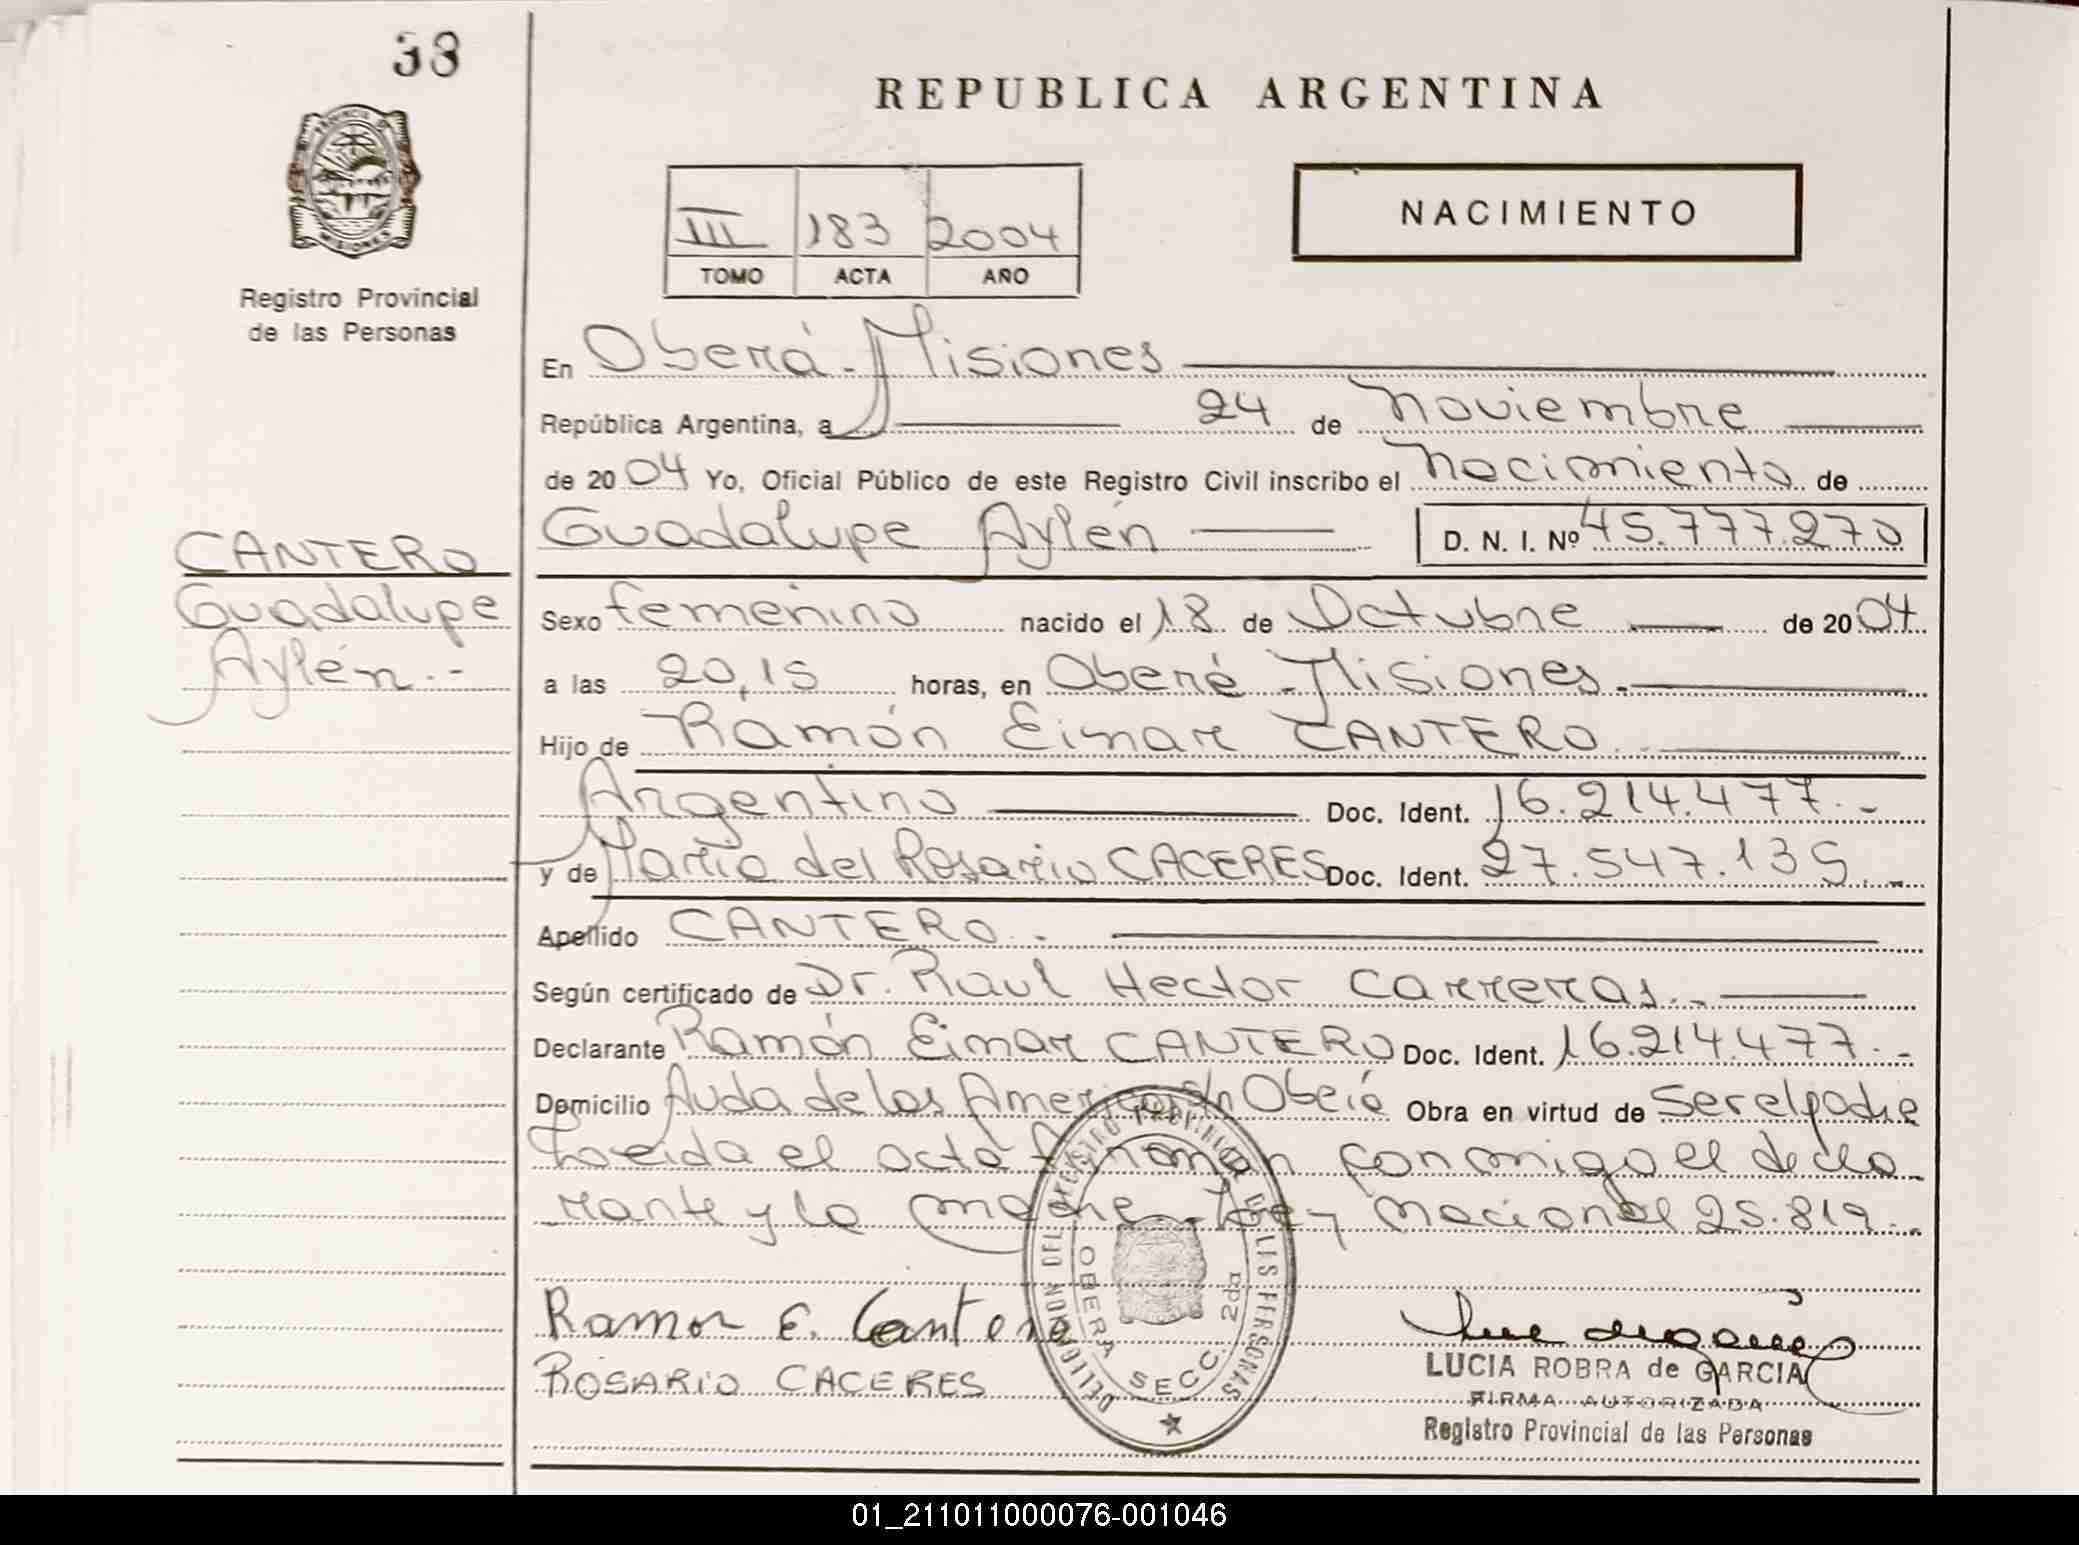 38
REPUBLICA ARGENTINA
PROVINCIA DE
MISIONES
Registro Provincial
de las Personas
III 183 2004
TOMO ACTA AÑO
NACIMIENTO
En Oberá - Misiones
República Argentina, a 24 de Noviembre
de 2004 Yo, Oficial Público de este Registro Civil inscribo el Nacimiento de
Guadalupe Aylén D. N. I. Nº 45.777.270
CANTERO
Guadalupe
Aylén.-
Sexo femenino nacido el 18 de Octubre de 2004
a las 20,15 horas, en Oberá - Misiones.
Hijo de Ramón Eimar CANTERO
Argentino Doc. Ident. 16.214.477.-
y de María del Rosario CACERES Doc. Ident. 27.547.135.-
Apellido CANTERO.
Según certificado de Dr. Raul Hector Carreras.
Declarante Ramón Eimar CANTERO Doc. Ident. 16.214.477.-
Domicilio Avda de las Americas Oberá Obra en virtud de ser el padre
Leida el acta firman conmigo el decla
rante y la madre - Ley Nacional 25.819.-
Ramon E. Cantero
ROSARIO CACERES
DELEGACION DEL REGISTRO PROVINCIAL DE LAS PERSONAS
OBERA SECC. 2da
LUCIA ROBRA de GARCIA
FIRMA AUTORIZADA
Registro Provincial de las Personas
01_211011000076-001046